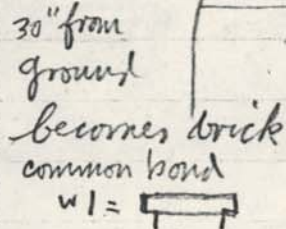 30" from
ground
becomes brick
common bond
w/ =